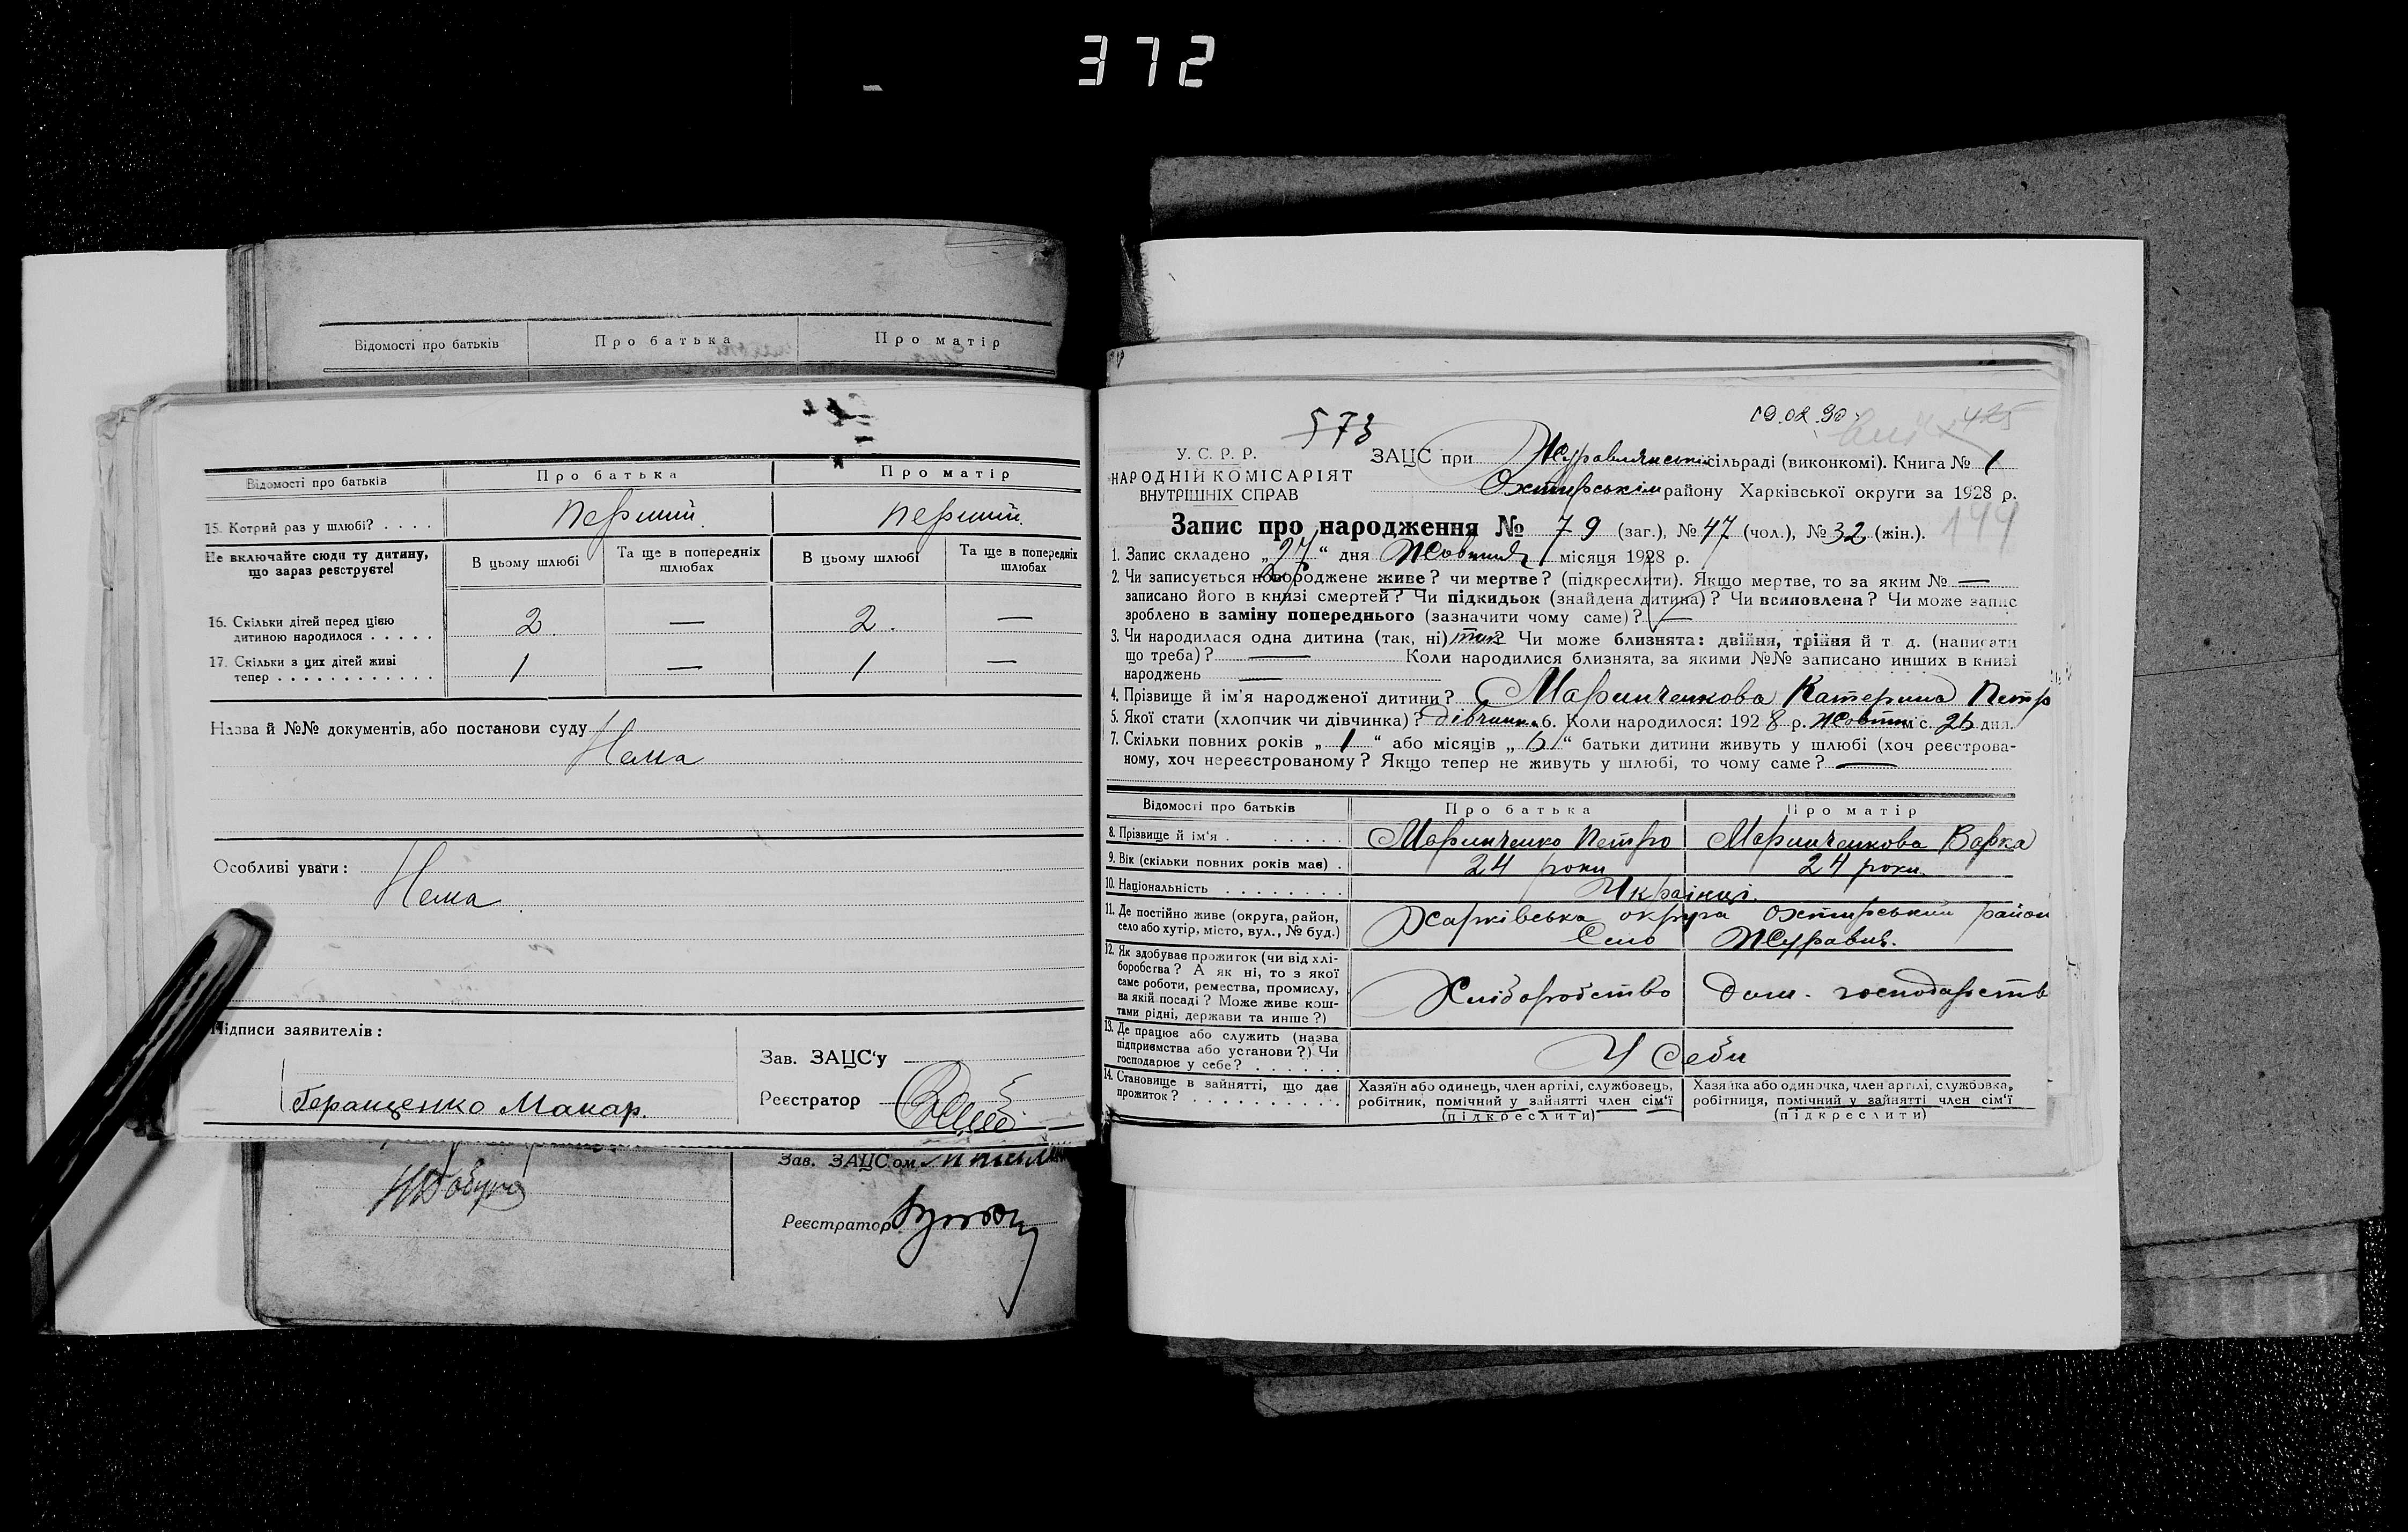 372
Відомості про батьків Про батька Про матір
Відомості про батьків Про батька Про матір
15. Котрий раз у шлюбі? . . . . перший. перший.
Не включайте сюди ту дитину, що зараз реєструєте!
В цьому шлюбі Та ще в попередніх шлюбах В цьому шлюбі Та ще в попередніх шлюбах
16. Скільки дітей перед цією
дитиною народилося . . . . . 2. — 2. —
17. Скільки з цих дітей живі
тепер . . . . . . . . . . . . 1 — 1 —
Назва й №№ документів, або постанови суду
Нема
Особливі уваги:
Нема
Підписи заявителів:
Зав. ЗАЦС'у
Геращенко Макар.
Реєстратор
Зав. ЗАЦС'ом
Реєстратор
573
19.02.90
425
У. С. Р. Р.
НАРОДНІЙ КОМІСАРІЯТ
ВНУТРІШНІХ СПРАВ
ЗАЦС при Журавлянській сільраді (виконкомі). Книга № 1
Охтирськім району Харківської округи за 1928 р.
Запис про народження № 79 (заг.), № 47 (чол.), № 32 (жін.).
199
1. Запис складено „27“ дня Жовтня місяця 1928 р.
2. Чи записується новороджене живе? чи мертве? (підкреслити). Якщо мертве, то за яким № —
записано його в книзі смертей? Чи підкидьок (знайдена дитина)? Чи всиновлена? Чи може запис
зроблено в заміну попереднього (зазначити чому саме)? —
3. Чи народилася одна дитина (так, ні) так Чи може близнята: двійня, трійня й т. д. (написати
що треба)? — Коли народилися близнята, за якими №№ записано инших в книзі
народжень —
4. Прізвище й ім'я народженої дитини? Маринченкова Катерина Петр
5. Якої стати (хлопчик чи дівчинка)? дівчинка 6. Коли народилося: 1928 р. Жовтн м с. 26 дня.
7. Скільки повних років „1“ або місяців „6“ батьки дитини живуть у шлюбі (хоч реєстрова-
ному, хоч нереєстрованому? Якщо тепер не живуть у шлюбі, то чому саме? —
Відомості про батьків Про батька Про матір
8. Прізвище й ім'я . . . . . . . Маринченко Петро Маринченкова Варка
9. Вік (скільки повних років має) . 24 роки 24 роки.
10. Національність . . . . . . . . Українці.
11. Де постійно живе (округа, район, Харківська округа Охтирський район
село або хутір, місто, вул., № буд.) Село Журавне.
12. Як здобуває прожиток (чи від хлі-
боробства? А як ні, то з якої
саме роботи, ремества, промислу,
на якій посаді? Може живе кош-
тами рідні, держави та инше?)
Хліборобство Дом. господарств
13. Де працює або служить (назва
підприємства або установи?) Чи
господарює у себе? . . . . . .
У Себи
14. Становище в зайнятті, що дає
прожиток? . . . . . . . . . . .
Хазяїн або одинець, член артілі, службовець,
робітник, помічний у зайнятті член сім'ї
(підкреслити)
Хазяйка або одиночка, член артілі, службовка,
робітниця, помічний у зайнятті член сім'ї
(підкреслити)